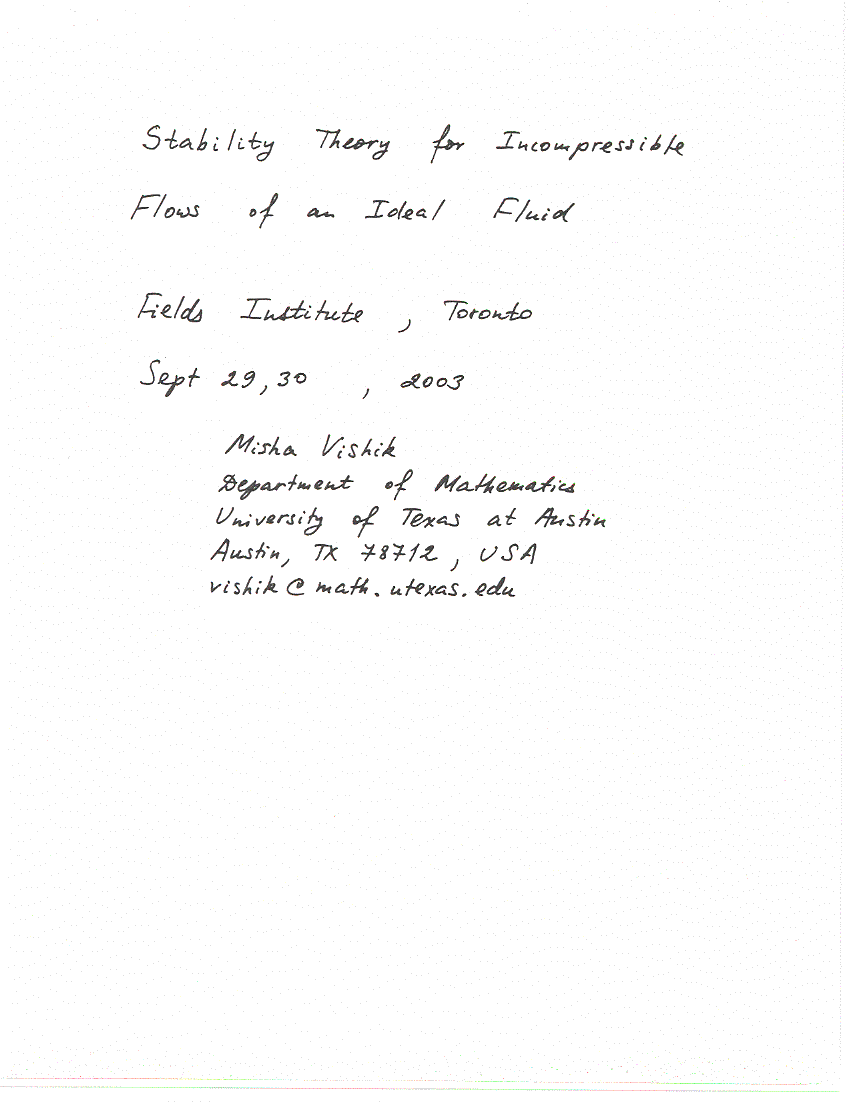 Stability Theory for Incompressible
Flows of an Ideal Fluid
Fields Institute , Toronto
Sept 29, 30 , 2003
Misha Vishik
Department of Mathematics
University of Texas at Austin
Austin, TX 78712 , USA
vishik@math.utexas.edu